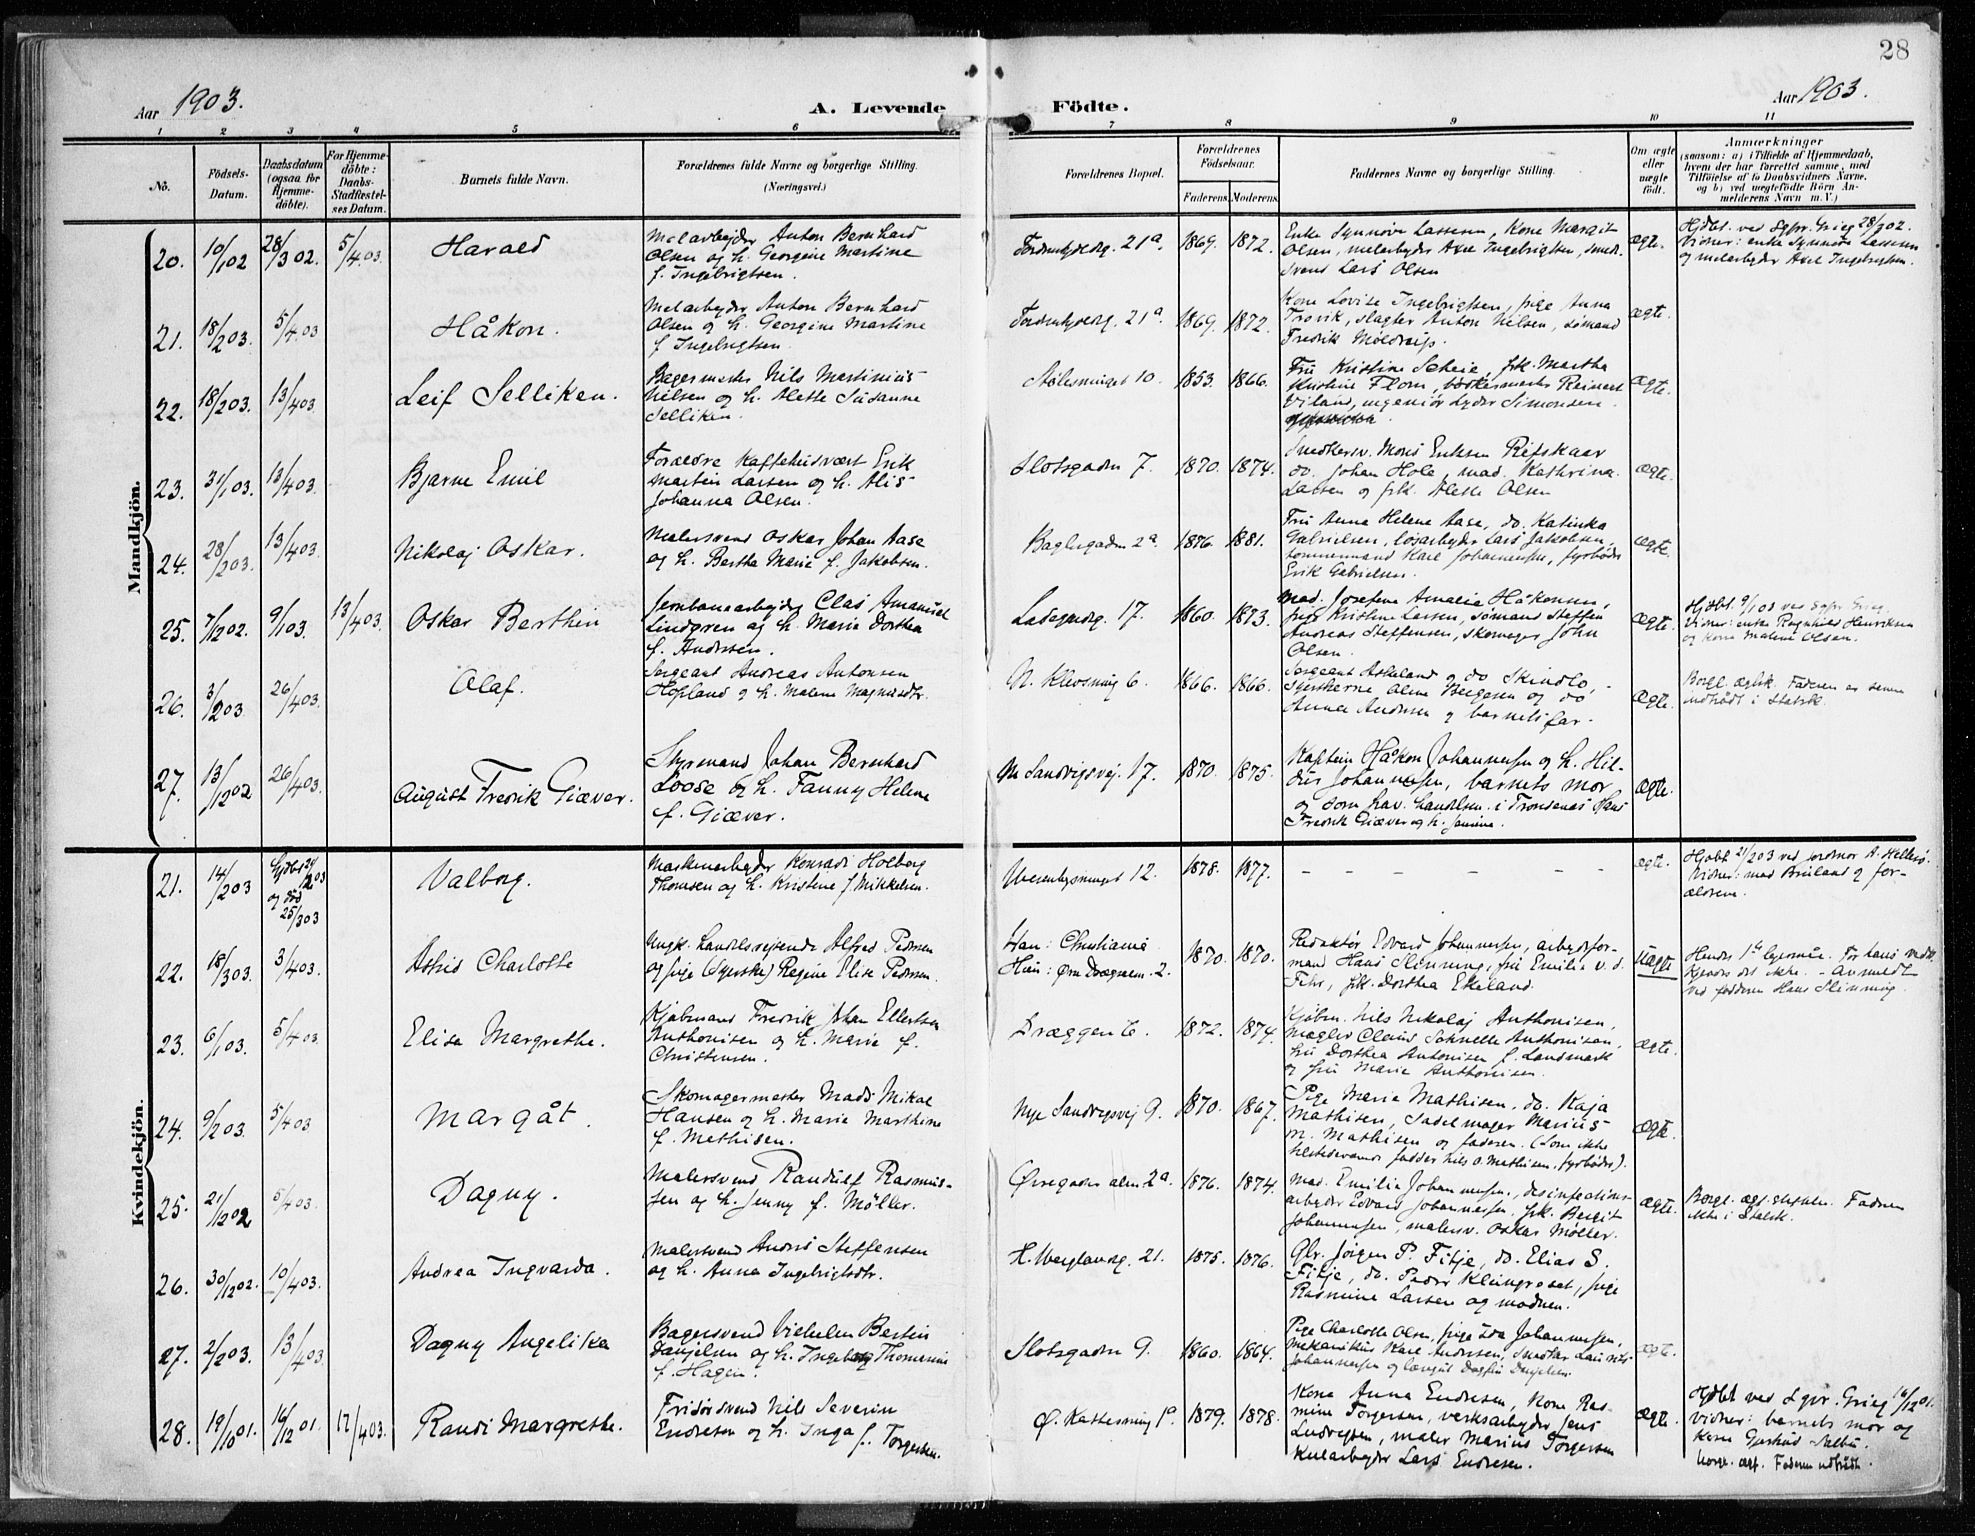 28
Aar 1903.
A. Levende Födte.
Aar 1903.
1 2 3 4 5 6 7 8 9 10 11
No.
Födsels-
Datum.
Daabsdatum
(ogsaa for
Hjemme-
döbte).
For Hjemme-
döbte:
Daabs-
Stadfæstel-
ses Datum.
Barnets fulde Navn.
Forældrenes fulde Navne og borgerlige Stilling.
(Næringsvei.)
Forældrenes Bopæl.
Forældrenes
Födselsaar.
Faderens Moderens
Faddernes Navne og borgerlige Stilling.
Om ægte
eller
uægte
födt.
Anmærkninger
(saasom: a) i Tilfælde af Hjemmedaab,
hvem der har forrettet samme, med
Tilföielse af to Daabsvidners Navne,
og b) ved uægtefödte Börn An-
melderens Navn m. V.)
Mandkjön.
20. 10/1 02 28/3 02. 5/4 03. Harald
Melarbejder Anton Bernhard
Olsen og h. Georgine Martine
f. Ingebrigtsen.
21a. 1869. 1872.
Enke Synnøve Lassen, Kone Margit
Olsen, melarbejder Axel Ingebrigtsen, smed-
svend Lars Olsen
ægte.
Hjdbt. ved Sgpr. Grieg 28/3 02.
Vidner: enke Synnøve Lassen
og melarbejder Axel Ingebrigtsen.
21. 18/2 03. 5/4 03 Håkon.
Melarbejder Anton Bernhard
Olsen og h. Georgine Martine
f. Ingebrigtsen.
21a. 1869. 1872.
Kone Lovise Ingebrigtsen, pige Anna
slagter Anton Nilsen, sømand
Fredrik
ægte.
22. 18/2 03. 13/4 03. Leif Selliken.
Bagermester Nils Martinius
Nielsen og h. Alette Susanne
Selliken.
Stølesmuget 10. 1853. 1866.
Fru Kristine Scheie, frk. Martha
Kristine Flom, bødkermester Reinert
ingeniør Lyder Simonsen.
ægte.
23. 31/1 03. 13/4 03. Bjarne Emil
Forældre Kaffehusvært Erik
Martin Larsen og h. Alis
Johanna Olsen.
Slotsgaden 7. 1870. 1874.
Snedkersv. Mons Eriksen Refskaar
do. Johan Hole, mad. Kathrina
Larsen og frk. Alette Olsen
ægte.
24. 28/2 03. 13/4 03. Nikolaj Oskar.
Malersvend Oskar Johan Aase
og h. Bertha Marie f. Jakobsen.
Baglergaden 2a 1876. 1881.
Fru Anna Helene Aase, do. Katinka
Gabrielsen, løsarbejder Lars Jakobsen,
tømmermand Karl Johannessen, fyrbøder
Erik Gabrielsen.
ægte.
25. 7/12 02. 9/1 03. 13/4 03. Oskar Berthin
Jernbanearbejder Clas Amanuel
Lindgren og h. Marie Dorthea
f. Andersen.
Ladegaardsg. 17. 1860. 1873.
Mad. Josefine Amalie Håkonsen,
pige Kristine Larsen, sømand Steffen
Andreas Steffensen, skomager John
Olsen.
ægte.
Hjdbt. 9/1 03 ved Sgpr. Grieg.
Vidner: enke Ragnhild Henriksen
og kone Malene Olsen.
26. 3/2 03. 26/4 03. Olaf.
Sergeant Andreas Antonsen
Hopland og h. Malene Magnusdtr.
N. Klevsmug 6. 1866. 1866.
Sergeant Askeland og do Skindlo,
syerskerne Oline Bergesen og do
Anna Andersen og barnets far.
ægte.
Borgl. ægtsk. Faderen er senere
indtrådt i Statsk.
27. 13/12 02 26/4 03. August Fredrik Giæver.
Styrmand Johan Bernhard
Loose og h. Fanny Helene
f. Giæver.
Ny Sandvigsvej. 17. 1870. 1875.
Kaptein Håkon Johannessen og h. Hil-
dur Johannessen, barnets mor
og som hav. handelsm. i Trondenæs Hans
Fredrik Giæver og h. Jensine.
ægte.
Kvindekjön.
21. 14/2 03 Hjdbt 21/2 03
og død
25/3 03
Valborg.
Maskinarbejder Konrad Holberg
Thomsen og h. Kristine f. Mikkelsen.
12. 1878. 1877.
– – – – – –
ægte.
Hjdbt 21/2 03 ved jordmor A. Hellesø.
Vidner: mad Bruland og for-
ældrene.
22. 18/3 03. 3/4 03. Astrid Charlotte
Ungk. handelsrejsende Alfred Pedersen
og pige (syerske) Regine Elise Pedersen.
Han: Christiania
Hun: Øvre Dræggealm. 2. 1870. 1870.
Redaktør Edvard Johannessen, arbejdsfor-
mand Hans Slinning, fru Emilie v. d.
Fehr, frk. Dorthea Eikeland.
uægte
Hendes 1ste lejermål. For hans vedk.
kjendes det ikke. – Anmeldt
ved fadderen Hans Slinning.
23. 6/1 03. 5/4 03 Elisa Margrethe.
Kjøbmand Fredrik Johan Ellertsen
Anthonisen og h. Marie f.
Christensen.
Dræggen 6. 1872. 1874.
Kjøbm. Nils Nikolaj Anthonisen,
mægler Claus Schnelle Anthonisen,
fru Dorthea Antonisen f. Landmark
og fru Marie Anthonisen.
ægte.
24. 9/2 03. 5/4 03 Margåt.
Skomagermester Mads Mikal
Hansen og h. Marie Marthine
f. Mathisen.
Nye Sandvigsvej 9. 1870. 1867.
Pige Marie Mathisen, do. Kaja
Mathisen, sadelmager Marius
M. Mathisen og faderen. (Som ikke
tilstedevær. fadder Nils O. Mathisen, fyrbøder).
ægte.
25. 21/12 02 5/4 03. Dagny.
Malersvend Randulf Rasmus-
sen og h. Jenny f. Møller.
Øvregaden alm. 2a. 1876. 1874.
Mad. Emilie Johannessen, desinfektions-
arbejder Edvard Johannessen, frk. Bergit
Johannessen, malersv. Oskar Møller.
ægte.
Borgl. ægteskab. Faderen
ikke i Statsk.
26. 30/12 02. 10/4 03. Andrea Ingvarda.
Malersvend Andreas Steffensen
og h. Anna Ingebrigtsdtr.
H. Wergelandsg. 21. 1875. 1876.
Gbr. Jörgen P. Fitje, do. Elias S.
Fitje, do. Peder Kleingroset, pige
Rasmine Larsen og moderen.
27. 2/2 03. 13/4 03. Dagny Angelika
Bagersvend Vilhelm Bertin
Danjelsen og h. Ingeborg Thomine
f. Hagen.
Slotsgaden 9. 1860. 1864.
Pige Charlotte Olsen, pige Ida Johannessen,
mekanikus Karl Andersen, snedker Laurits
Johannessen og læregut Dagfin Danjelsen.
ægte.
28. 19/10 01. 16/12 01. 17/4 03. Randi Margrethe.
Frisörsvend Nils Severin
Endresen og h. Inga f. Torgersen.
Ø. Kattesmug 1a. 1879. 1878.
Kone Anna Endresen, kone Ras-
mine Torgersen, verksarbejder Jens
Ludvigsen, maler Marius Torgersen
kularbejder Lars Endresen.
ægte.
Hjdbt ved Sgpr. Grieg 16/12 01.
Vidner: barnets mor og
kone Gjertrud
borgl. ægt. Faderen udtrådt.